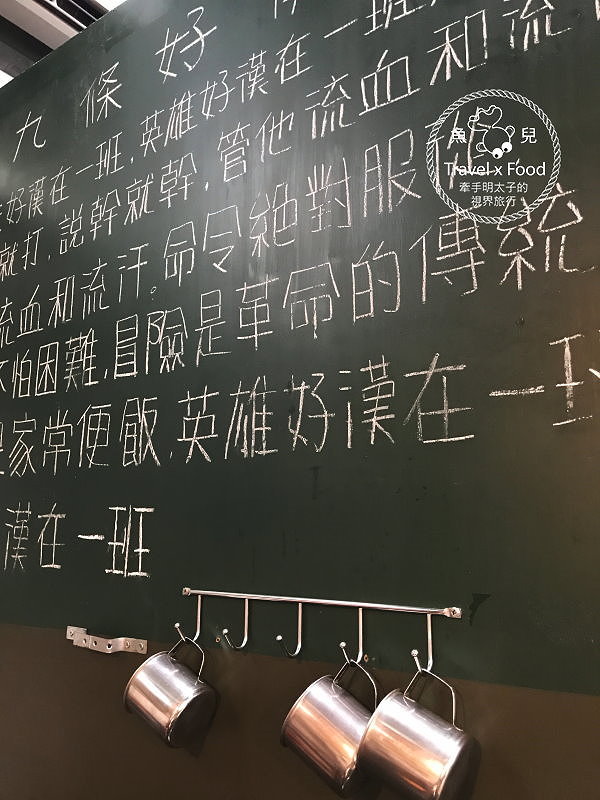 九條好
好漢在一班,英雄好漢在一班
就打,說幹就幹,管他流血和流
流血和流汗。命令絕對服
怕困難,冒險是革命的傳統
家常便飯,英雄好漢在一班
漢在一班
魚兒
Travel x Food
牽手明太子的
視界旅行